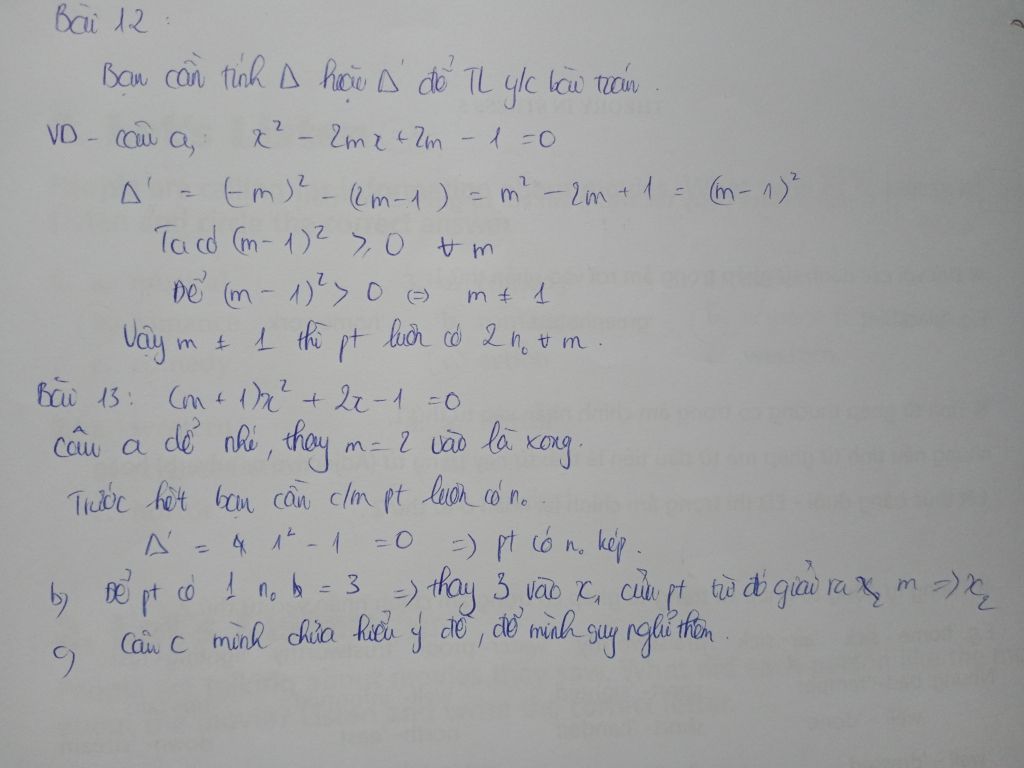 Bài 12:
Bạn cần tính Δ hoặc Δ' để TL y/c bài toán.
VD - câu a, x² - 2mx + 2m - 1 = 0
Δ' = (-m)² - (2m-1) = m² - 2m + 1 = (m-1)²
Ta có (m-1)² ≥ 0 ∀ m
Để (m-1)² > 0 ⇔ m ≠ 1
Vậy m ≠ 1 thì pt luôn có 2 n₀ ∀ m.
Bài 13: (m+1)x² + 2x - 1 = 0
Câu a dễ nhỉ, thay m = 2 vào là xong.
Trước hết bạn cần c/m pt luôn có n₀
Δ' = 1² - 1 = 0 => pt có n₀ kép.
b) Để pt có 1 n₀ = 3 => thay 3 vào x₁ của pt từ đó giải ra m => x₂
c) Câu c mình chưa hiểu ý đề, để mình suy nghĩ thêm.